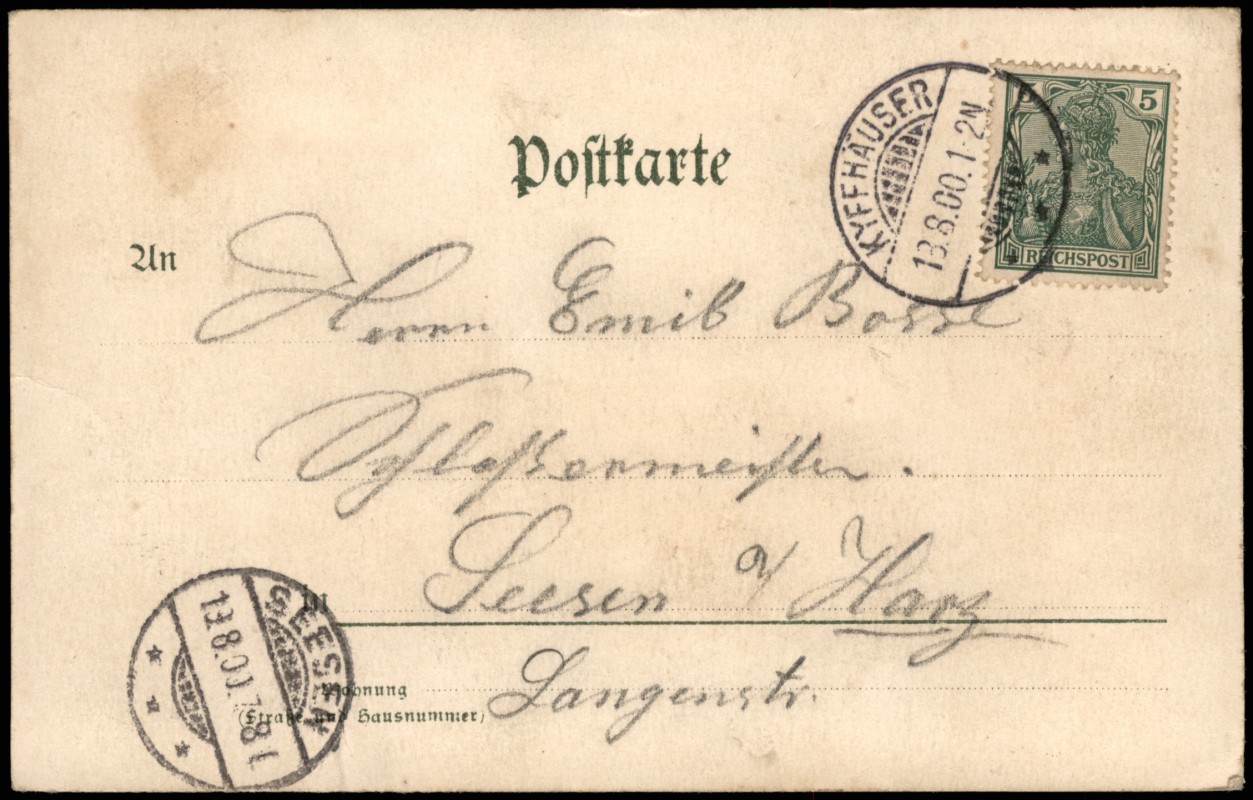 Postkarte
KYFFHÄUSER
13.8.00.1-2N
5
REICHSPOST
An
Herrn Emil Bosse
Schloßermeister.
in
Seesen a/ Harz
Wohnung
(Straße und Hausnummer)
Langenstr.
SEESEN
13.8.00.7-8N